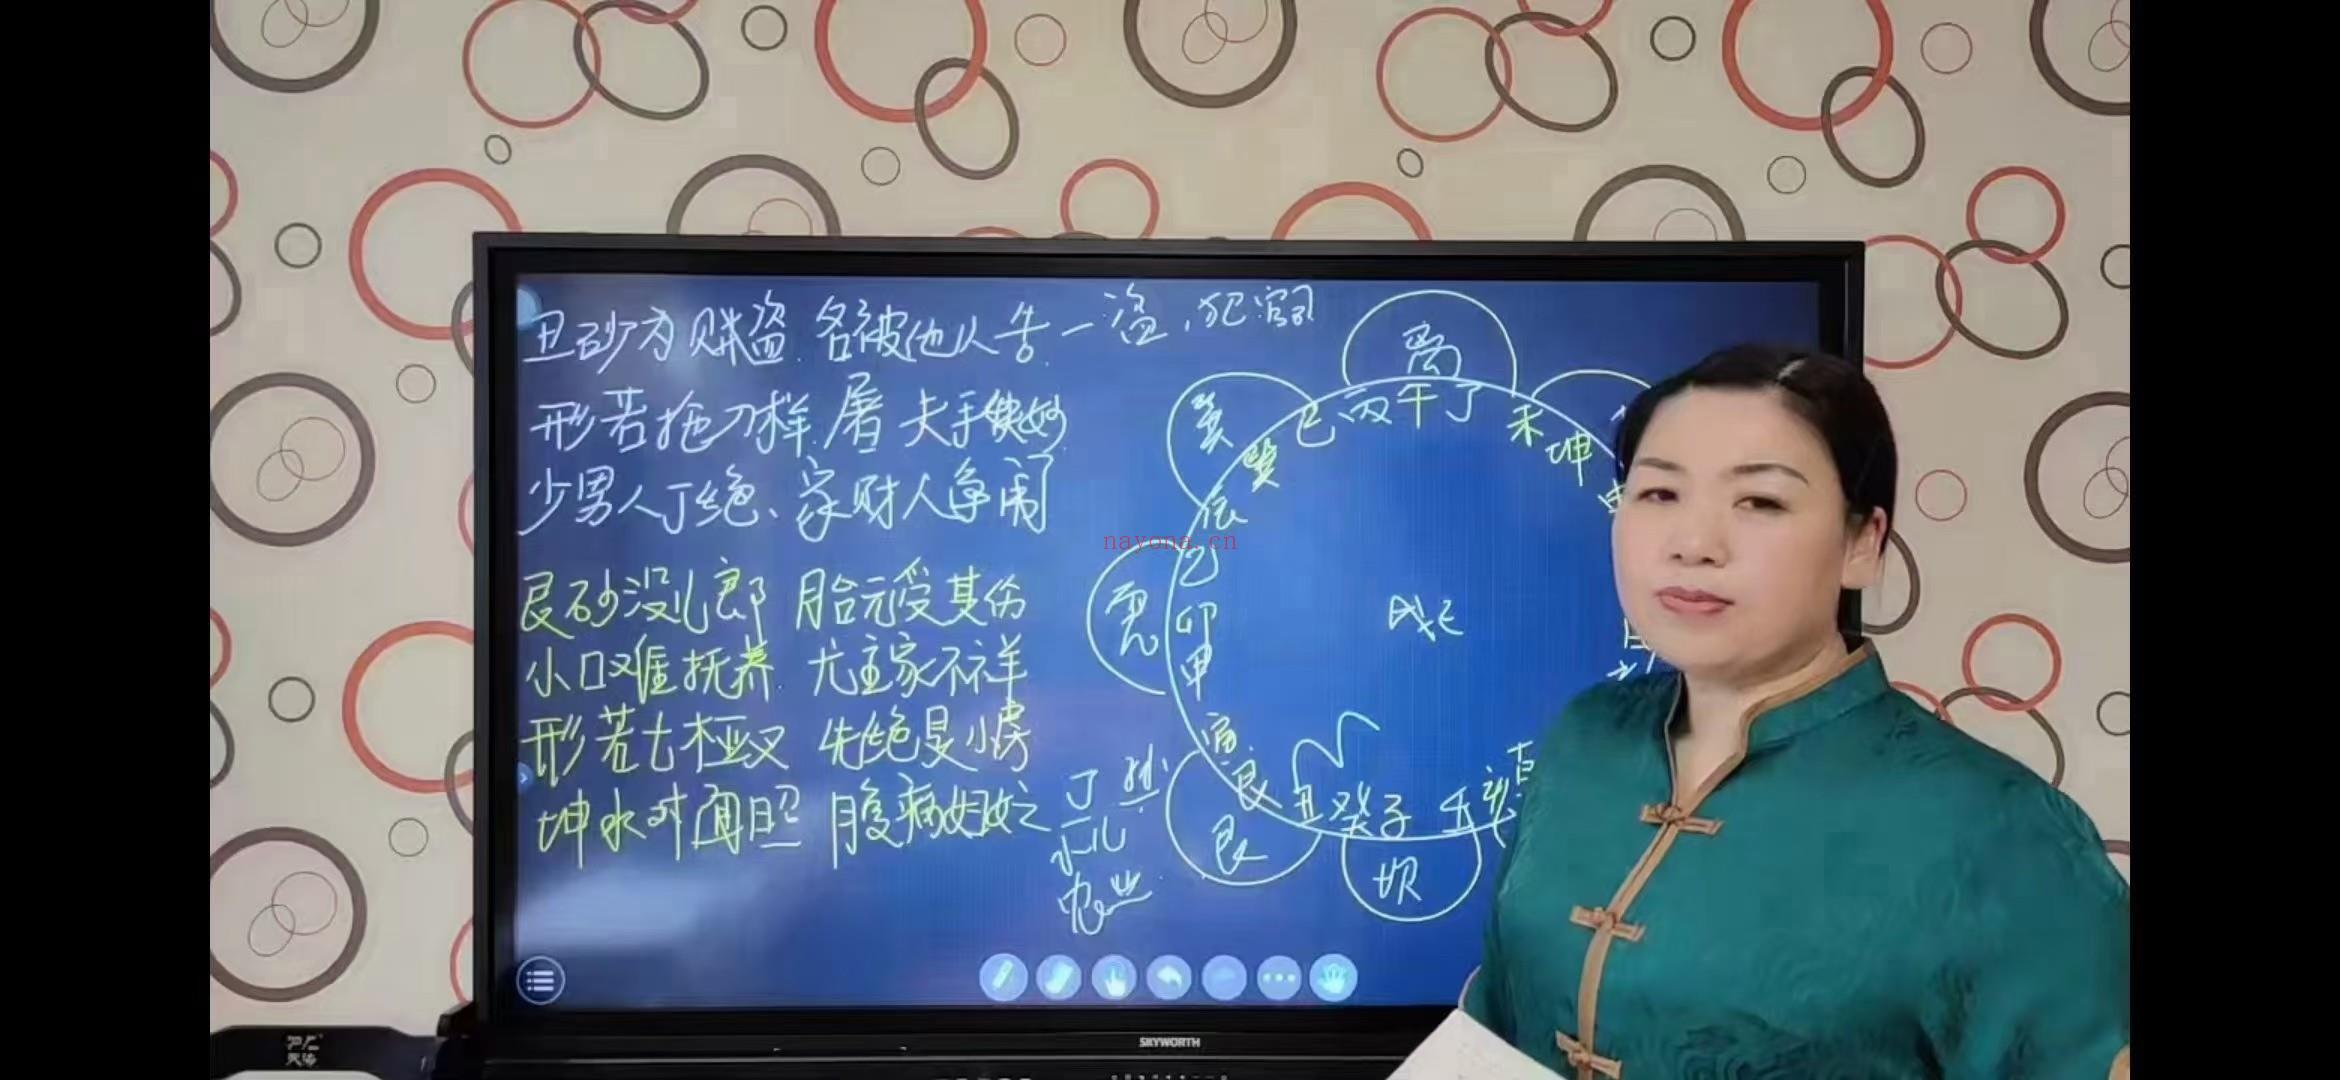 丑砂为贼盗 各被他人告 一盗,犯
形若拖刀样 屠夫手
少男人丁绝、家财人争闹
艮砂没儿郎 胎元受其伤
小口难抚养 尤主家不祥
形若七桠叉 失绝是小房
坤水对面照 腹病妇
丁
小儿
农业
离
巽
震
艮
坎
巽 巳 丙 午 丁 未 坤
辰
乙
卯
甲
寅
艮 丑 癸 子 壬
戊己
nayona.cn
SKYWORTH